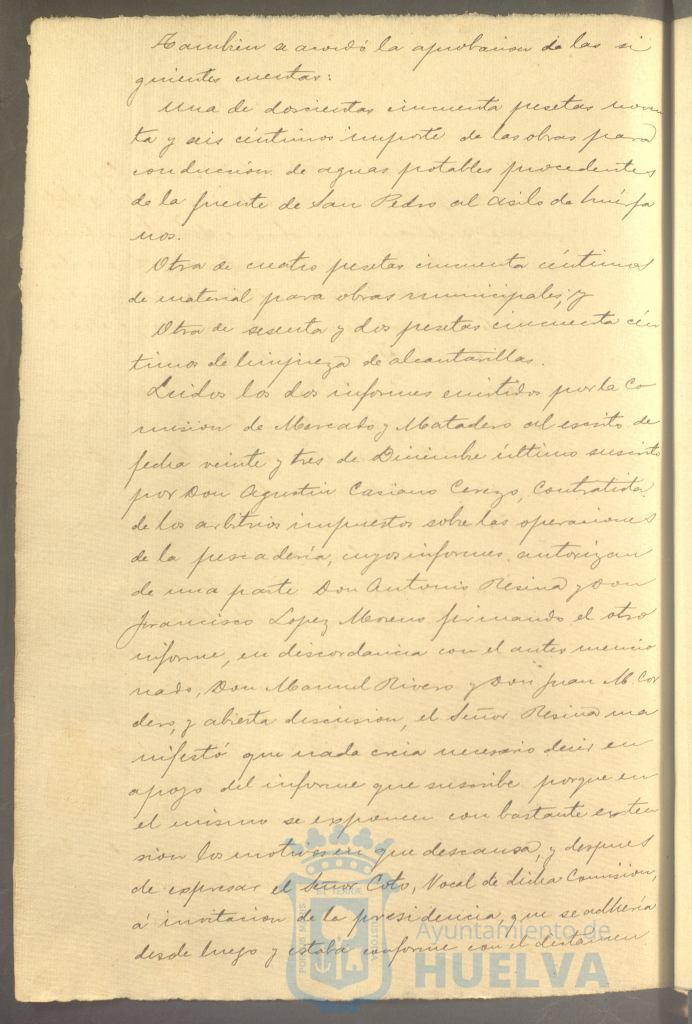 Tambien se acordó la aprobacion de las si
guientes cuentas:
Una de doscientas cincuenta pesetas noven
ta y seis céntimos importe de las obras para
conduccion de aguas potables procedentes
de la fuente de San Pedro al Asilo de huérfa
nos.
Otra de cuatro pesetas cincuenta céntimos
de material para obras municipales; y
Otra de sesenta y dos pesetas cincuenta cén
timos de limpieza de alcantarillas.
Leidos los dos informes emitidos por la Co
mision de Mercado y Matadero al escrito de
fecha veinte y tres de Diciembre último suscrito
por Don Agustin Casiano Cerezo, Contratista
de los arbitrios impuestos sobre las operaciones
de la pescadería, cuyos informes autorizan
de una parte Don Antonio Resina y Don
Francisco Lopez Moreno firmando el otro
informe, en discordancia con el antes mencio
nado, Don Manuel Rivero y Don Juan M. Cor
dero, y abierta discusion, el Señor Resina ma
nifestó que nada creia necesario decir en
apoyo del informe que suscribe porque en
el mismo se exponen con bastante exten
sion los motivos en que descansa, y despues
de expresar el Señor Coto, Vocal de dicha Comision,
á invitacion de la presidencia, que se adheria
desde luego y estaba conforme con el dictamen
Ayuntamiento de
HUELVA